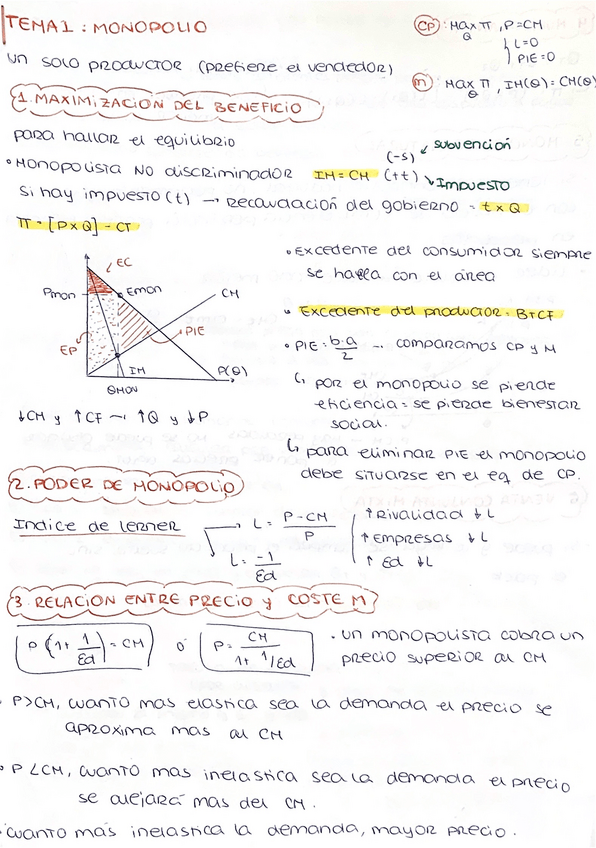 TEMA 1 : MONOPOLIO
CP : Max π , P=CM
Q
L=0
PIE=0
UN SOLO PRODUCTOR (prefiere el vendedor)
M : Max π , IM(Q) = CM(Q)
Q
1. MAXIMIZACIÓN DEL BENEFICIO
para hallar el equilibrio
• MONOPOLISTA NO DISCRIMINADOR IM = CM (-s) subvención
(+t) Impuesto
Si hay impuesto (t) → Recaudación del gobierno = t x Q
π = [P x Q] - CT
EC
Pmon
Emon
CM
PIE
EP
IM
P(Q)
QMON
• Excedente del consumidor siempre
se halla con el área
• Excedente del productor = B+CF
• PIE = b·a/2 → comparamos CP y M
↳ por el monopolio se pierde
eficiencia - se pierde bienestar
social.
↓CM y ↑CF → ↑Q y ↓P
↳ para eliminar PIE el monopolio
debe situarse en el eq de CP.
2. PODER DE MONOPOLIO
Indice de lerner
L = P - CM / P
L = 1 / Ed
↑ Rivalidad ↓ L
↑ empresas ↓ L
↑ Ed ↓ L
3. RELACIÓN ENTRE PRECIO y COSTE M
P (1+ 1/Ed) = CM ó P = CM / 1+ 1/Ed
• un monopolista cobra un
precio superior al CM
• P>CM, cuanto mas elastica sea la demanda el precio se
aproxima mas al CM
• P<CM, cuanto mas inelastica sea la demanda el precio
se alejará mas del CM.
• cuanto más inelastica la demanda, mayor precio.